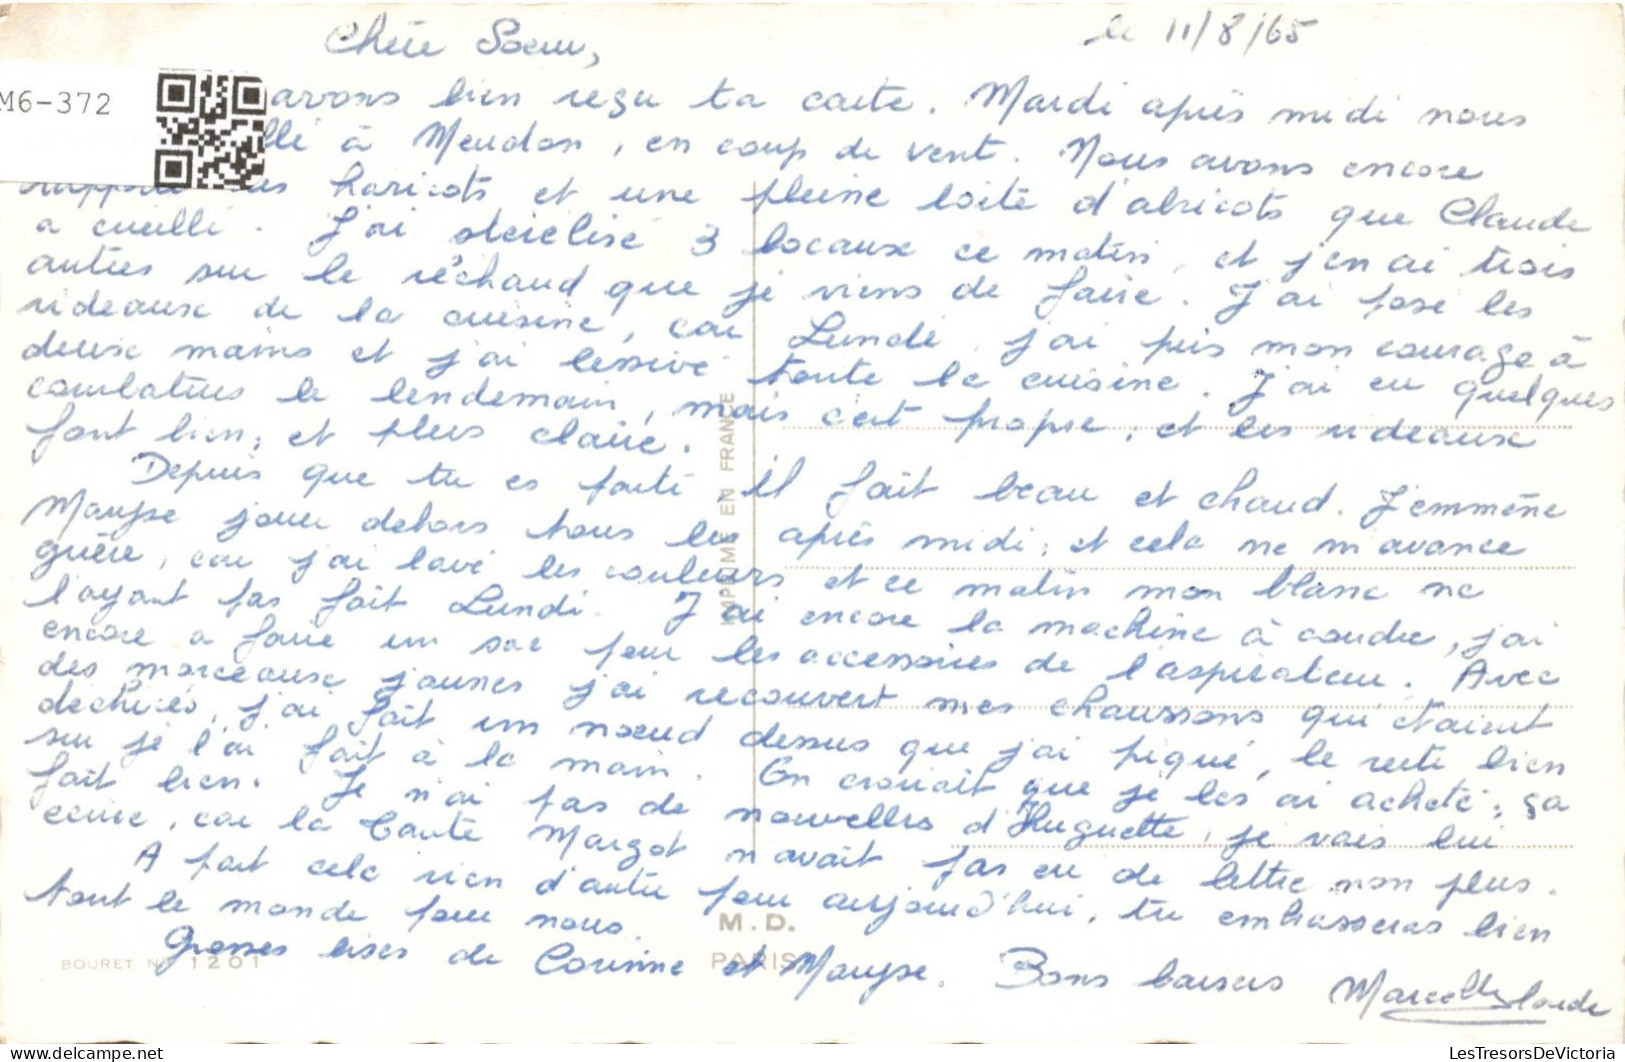 le 11/8/65
Chère Soeur,
M6-372
avons bien reçu ta carte. Mardi après midi nous
à Meudon, en coup de vent. Nous avons encore
haricots et une pleine boîte d'abricots que Claude
a cueilli. J'ai stérélisé 3 bocaux ce matin, et j'en ai trois
autres sur le réchaud que je viens de faire. J'ai posé les
rideaux de la cuisine, car Lundi j'ai pris mon courage à
deux mains et j'ai lessivé toute la cuisine. J'ai eu quelques
courbatures le lendemain, mais c'est propre, et les rideaux
font bien, et plus claire.
Depuis que tu es partie il fait beau et chaud. J'emmène
Maryse jouer dehors tous les après midi, et cela ne m'avance
guère, car j'ai lavé les couleurs et ce matin mon blanc ne
l'ayant pas fait Lundi. J'ai encore la machine à coudre, j'ai
encore a faire un sac pour les accessoires de l'aspirateur. Avec
des morceaux jaunes j'ai recouvert mes chaussons qui étaient
déchirés, j'ai fait un noeud dessus que j'ai piqué, le reste bien
sur je l'ai fait à la main. On croirait que je les ai acheté, ça
fait bien. Je n'ai pas de nouvelles d'Huguette, je vais lui
écrire, car la Tante Margot n'avait pas eu de lettre non plus.
A part cela rien d'autre pour aujourd'hui, tu embrasseras bien
tout le monde pour nous.
Grosses bises de Corinne et Maryse. Bons baisers Marcelle
IMPRIMÉ EN FRANCE
M.D.
PARIS
BOURET N° 1201
LesTresorsDeVictoria
delcampe.net